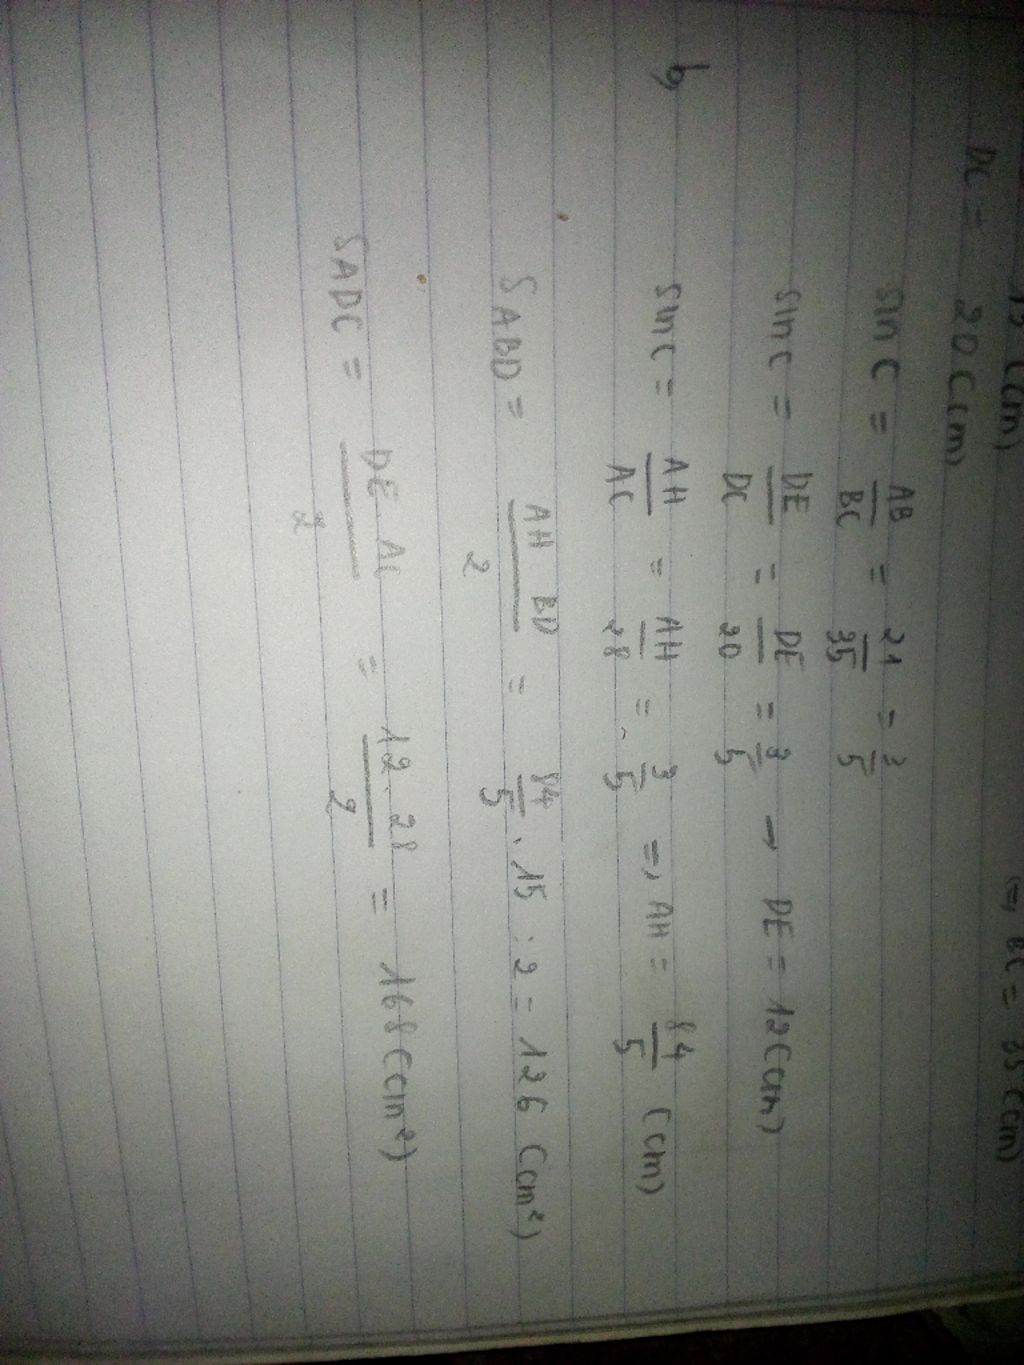 15 (cm) (=) BC = 35 (cm)
DC = 20 (cm)
sin C = AB/BC = 21/35 = 3/5
sin C = DE/DC = DE/20 = 3/5 → DE = 12 (cm)
b, sin C = AH/AC = AH/28 = 3/5 => AH = 84/5 (cm)
SABD = AH BD/2 = 84/5 . 15 : 2 = 126 (cm²)
SADC = DE AC/2 = 12.28/2 = 168 (cm²)